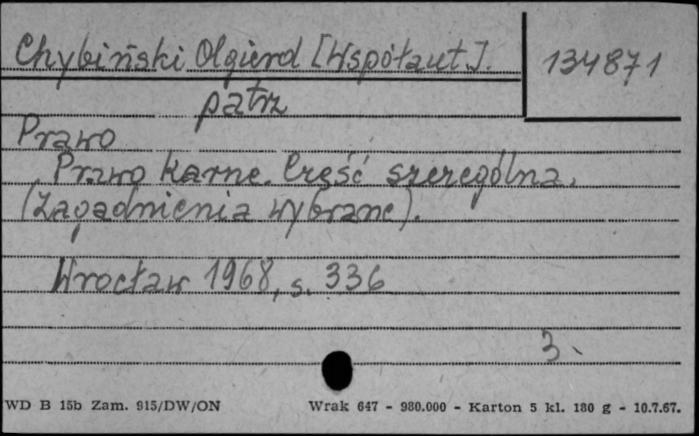 Chybiński Olgierd [Współaut.].
134871
patrz
Prawo
Prawo karne. Część szczególna.
(Zagadnienia wybrane).
Wrocław 1968, s. 336
3.
WD B 15b Zam. 915/DW/ON
Wrak 647 - 980.000 - Karton 5 kl. 180 g - 10.7.67.